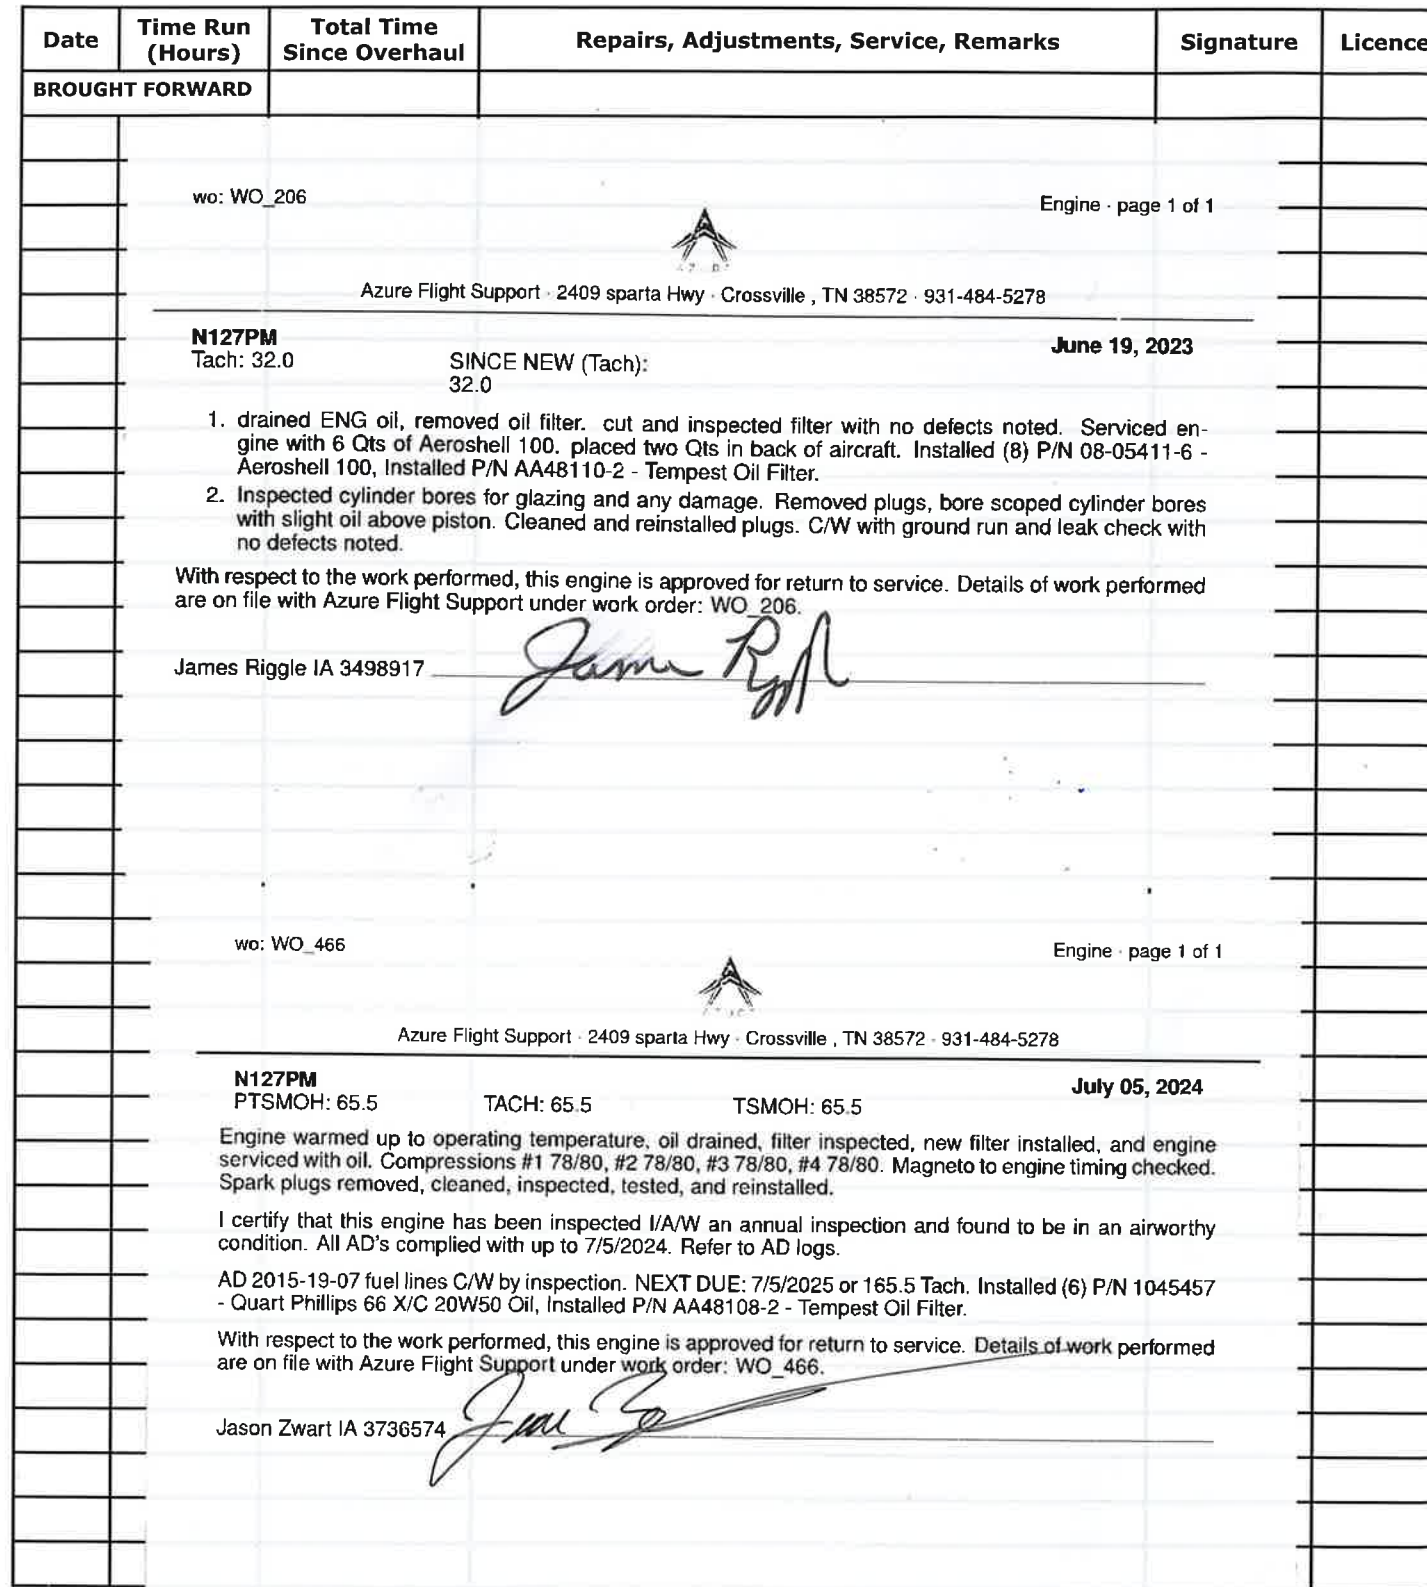 Date Time Run (Hours) Total Time Since Overhaul Repairs, Adjustments, Service, Remarks Signature Licence
BROUGHT FORWARD
wo: WO_206 Engine · page 1 of 1
Azure Flight Support · 2409 sparta Hwy · Crossville , TN 38572 · 931-484-5278
N127PM June 19, 2023
Tach: 32.0 SINCE NEW (Tach):
32.0
1. drained ENG oil, removed oil filter. cut and inspected filter with no defects noted. Serviced en-
gine with 6 Qts of Aeroshell 100. placed two Qts in back of aircraft. Installed (8) P/N 08-05411-6 -
Aeroshell 100, Installed P/N AA48110-2 - Tempest Oil Filter.
2. Inspected cylinder bores for glazing and any damage. Removed plugs, bore scoped cylinder bores
with slight oil above piston. Cleaned and reinstalled plugs. C/W with ground run and leak check with
no defects noted.
With respect to the work performed, this engine is approved for return to service. Details of work performed
are on file with Azure Flight Support under work order: WO_206.
James Riggle IA 3498917
wo: WO_466 Engine · page 1 of 1
Azure Flight Support · 2409 sparta Hwy · Crossville , TN 38572 · 931-484-5278
N127PM July 05, 2024
PTSMOH: 65.5 TACH: 65.5 TSMOH: 65.5
Engine warmed up to operating temperature, oil drained, filter inspected, new filter installed, and engine
serviced with oil. Compressions #1 78/80, #2 78/80, #3 78/80, #4 78/80. Magneto to engine timing checked.
Spark plugs removed, cleaned, inspected, tested, and reinstalled.
I certify that this engine has been inspected I/A/W an annual inspection and found to be in an airworthy
condition. All AD's complied with up to 7/5/2024. Refer to AD logs.
AD 2015-19-07 fuel lines C/W by inspection. NEXT DUE: 7/5/2025 or 165.5 Tach. Installed (6) P/N 1045457
- Quart Phillips 66 X/C 20W50 Oil, Installed P/N AA48108-2 - Tempest Oil Filter.
With respect to the work performed, this engine is approved for return to service. Details of work performed
are on file with Azure Flight Support under work order: WO_466.
Jason Zwart IA 3736574